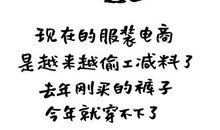 现在的服装电商
是越来越偷工减料了
去年刚买的裤子
今年就穿不下了